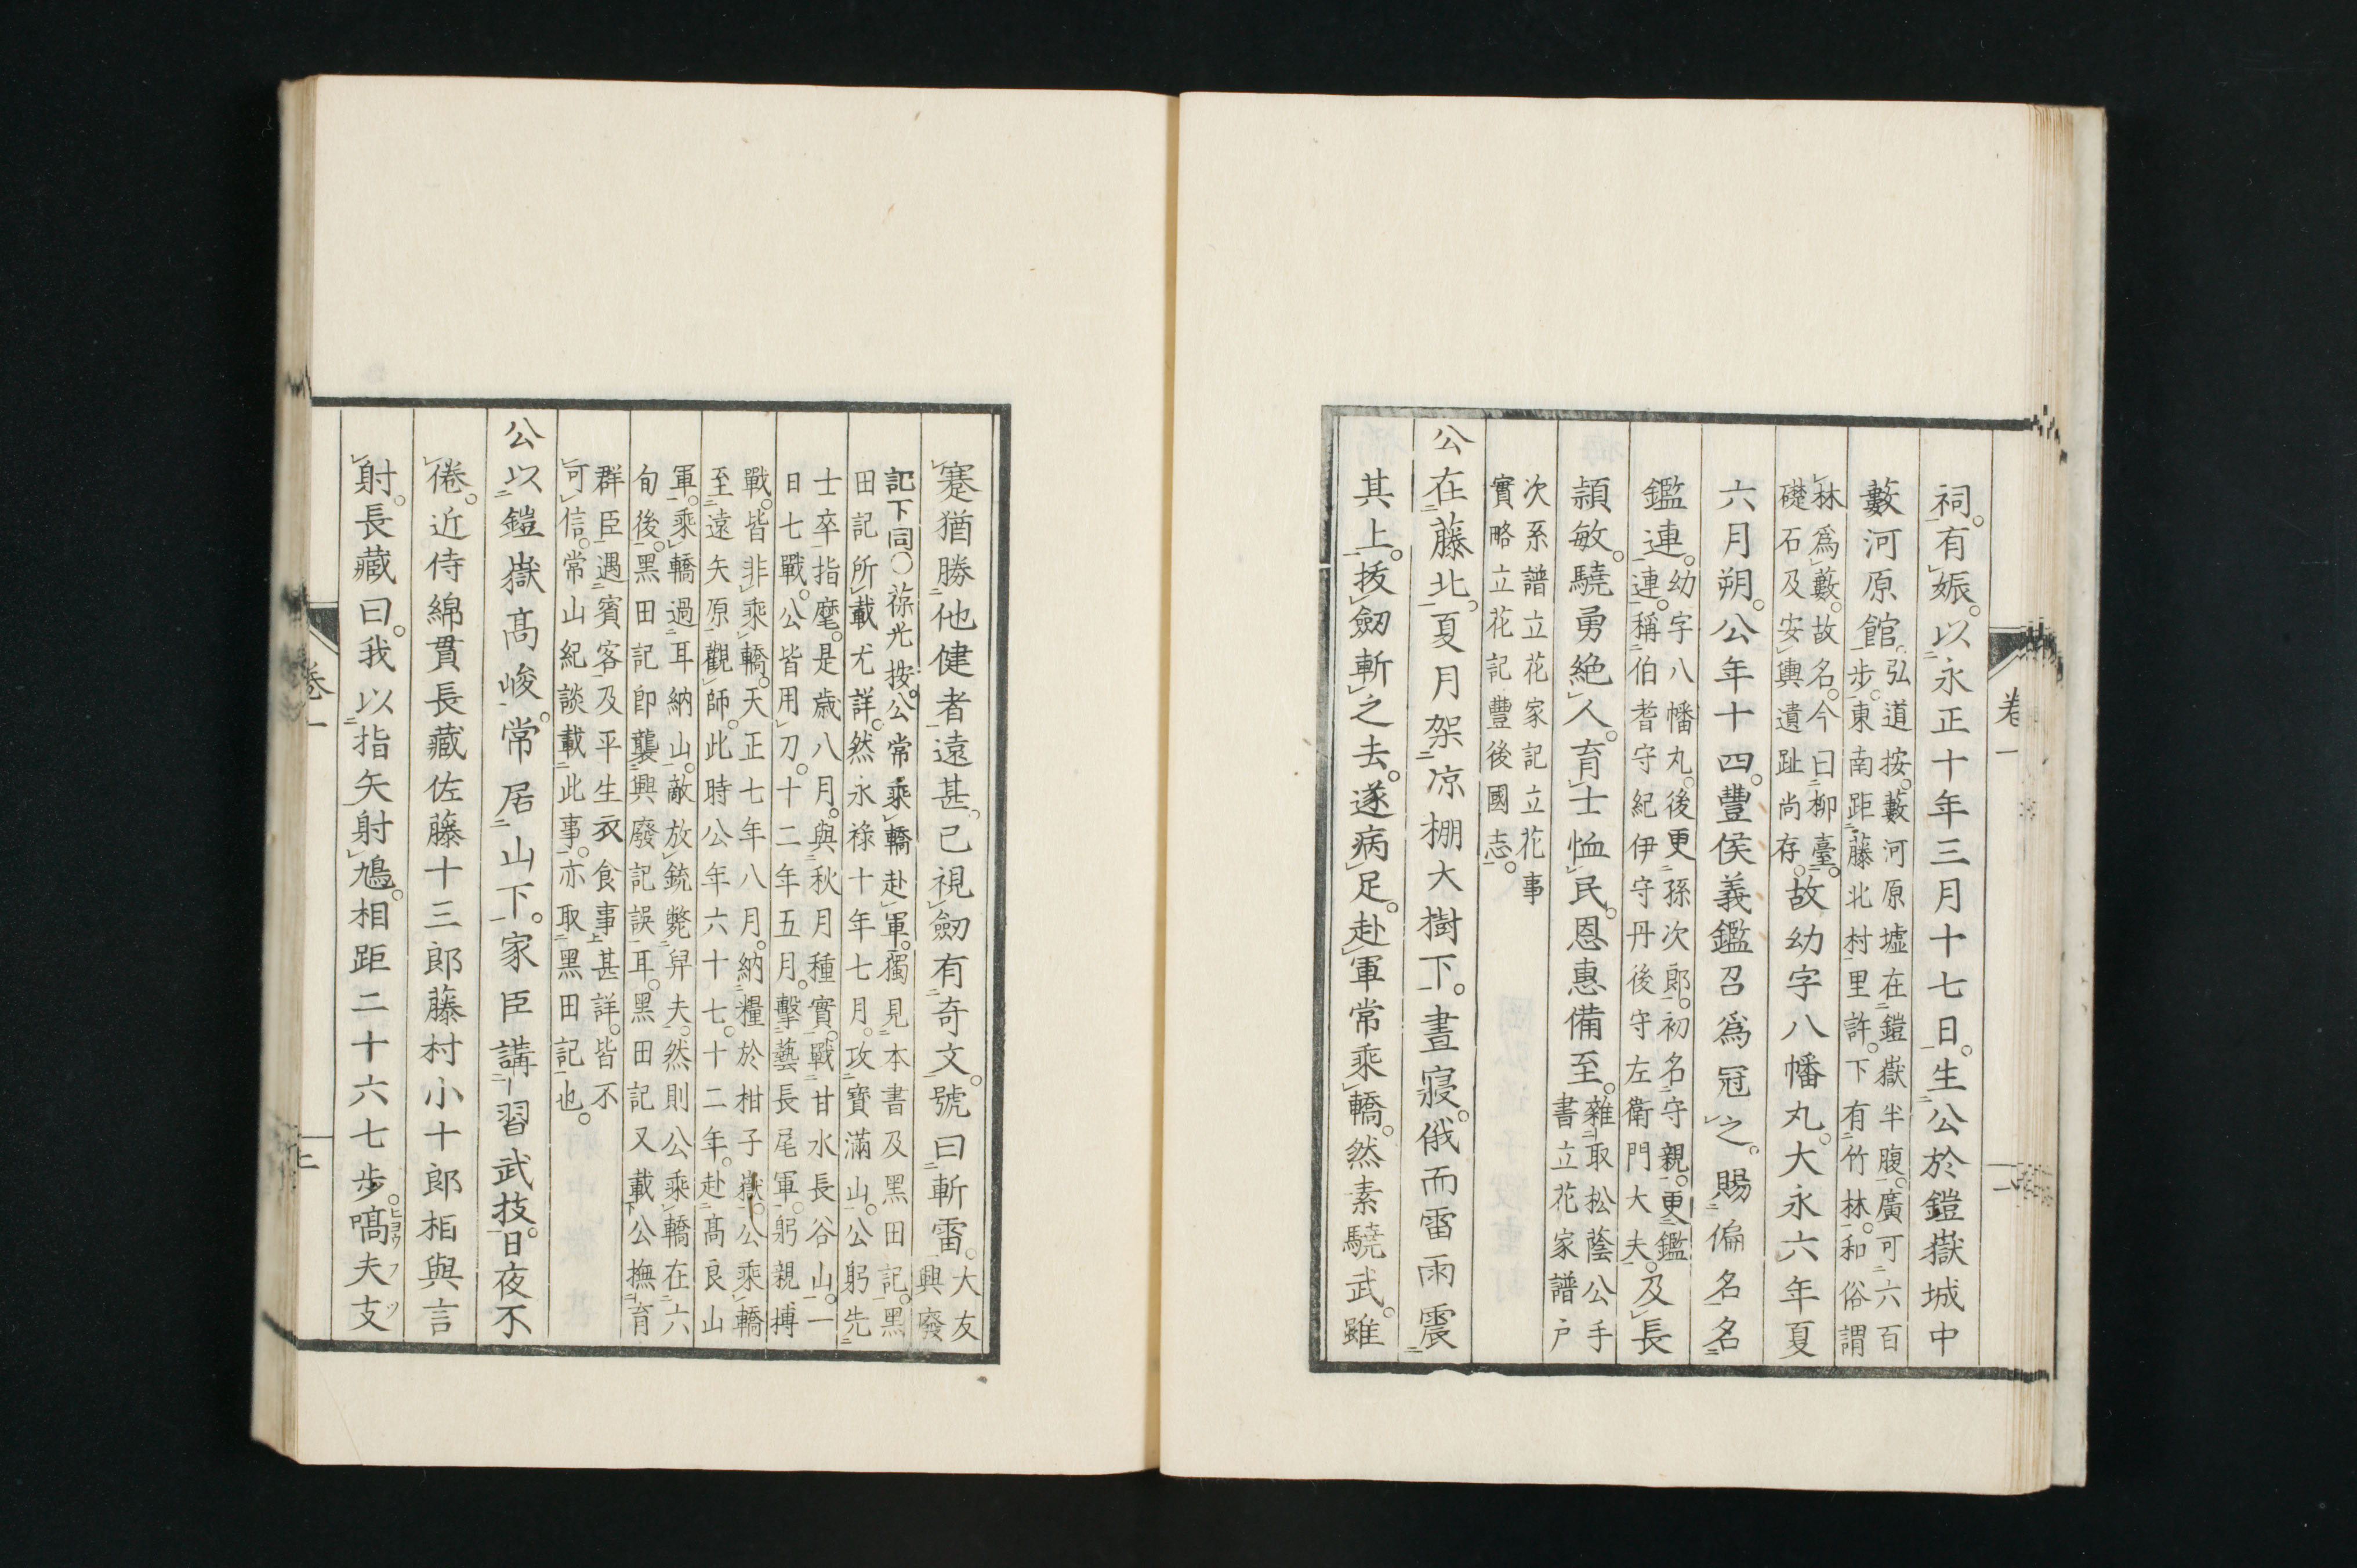 卷一
一
祠。有娠。以永正十年三月十七日。生公於鎧嶽城中
藪河原館。弘道按。藪河原墟在鎧嶽半腹。廣可六百
步。東南距藤北村里許。下有竹林。和俗謂
林爲藪。故名。今曰柳臺。
礎石及安輿遺趾尚存。故幼字八幡丸。大永六年夏
六月朔。公年十四。豐侯義鑑召爲冠之。賜偏名。名
鑑連。幼字八幡丸。後更孫次郎。初名守親。更鑑
連。稱伯耆守紀伊守丹後守左衞門大夫。及長
頴敏。驍勇絶人。育士恤民。恩惠備至。雜取松蔭公手
書立花家譜戸
次系譜立花家記立花事
實略立花記豐後國志。
公在藤北。夏月架凉棚大樹下。晝寢。俄而雷雨震
其上。拔劒斬之去。遂病足。赴軍常乘轎。然素驍武。雖
蹇猶勝他健者遠甚。已視劒有奇文。號曰斬雷。大友
興廢
記下同○葆光按。公常乘轎赴軍。獨見本書及黑田記。黑
田記所載尤詳。然永祿十年七月。攻寶滿山。公躬先
士卒指麾。是歳八月。與秋月種實。戰甘水長谷山。一
日七戰。公皆用刀。十二年五月。擊藝長尾軍。躬親搏
戰。皆非乘轎。天正七年八月。納糧於柑子嶽。公乘轎
至遠矢原觀師。此時公年六十七。十二年。赴髙良山
軍。乘轎過耳納山。敵放銃斃舁夫。然則公乘轎在六
旬後。黑田記即襲興廢記誤耳。黑田記又載公撫育
群臣遇賓客及平生衣食事甚詳。皆不
可信。常山紀談載此事。亦取黑田記也。
公以鎧嶽髙峻。常居山下。家臣講習武技。日夜不
倦。近侍綿貫長藏佐藤十三郎藤村小十郎相與言
射。長藏曰。我以指矢射鳩。相距二十六七步。嗃夫支
ヒヨウフツ
卷一
二